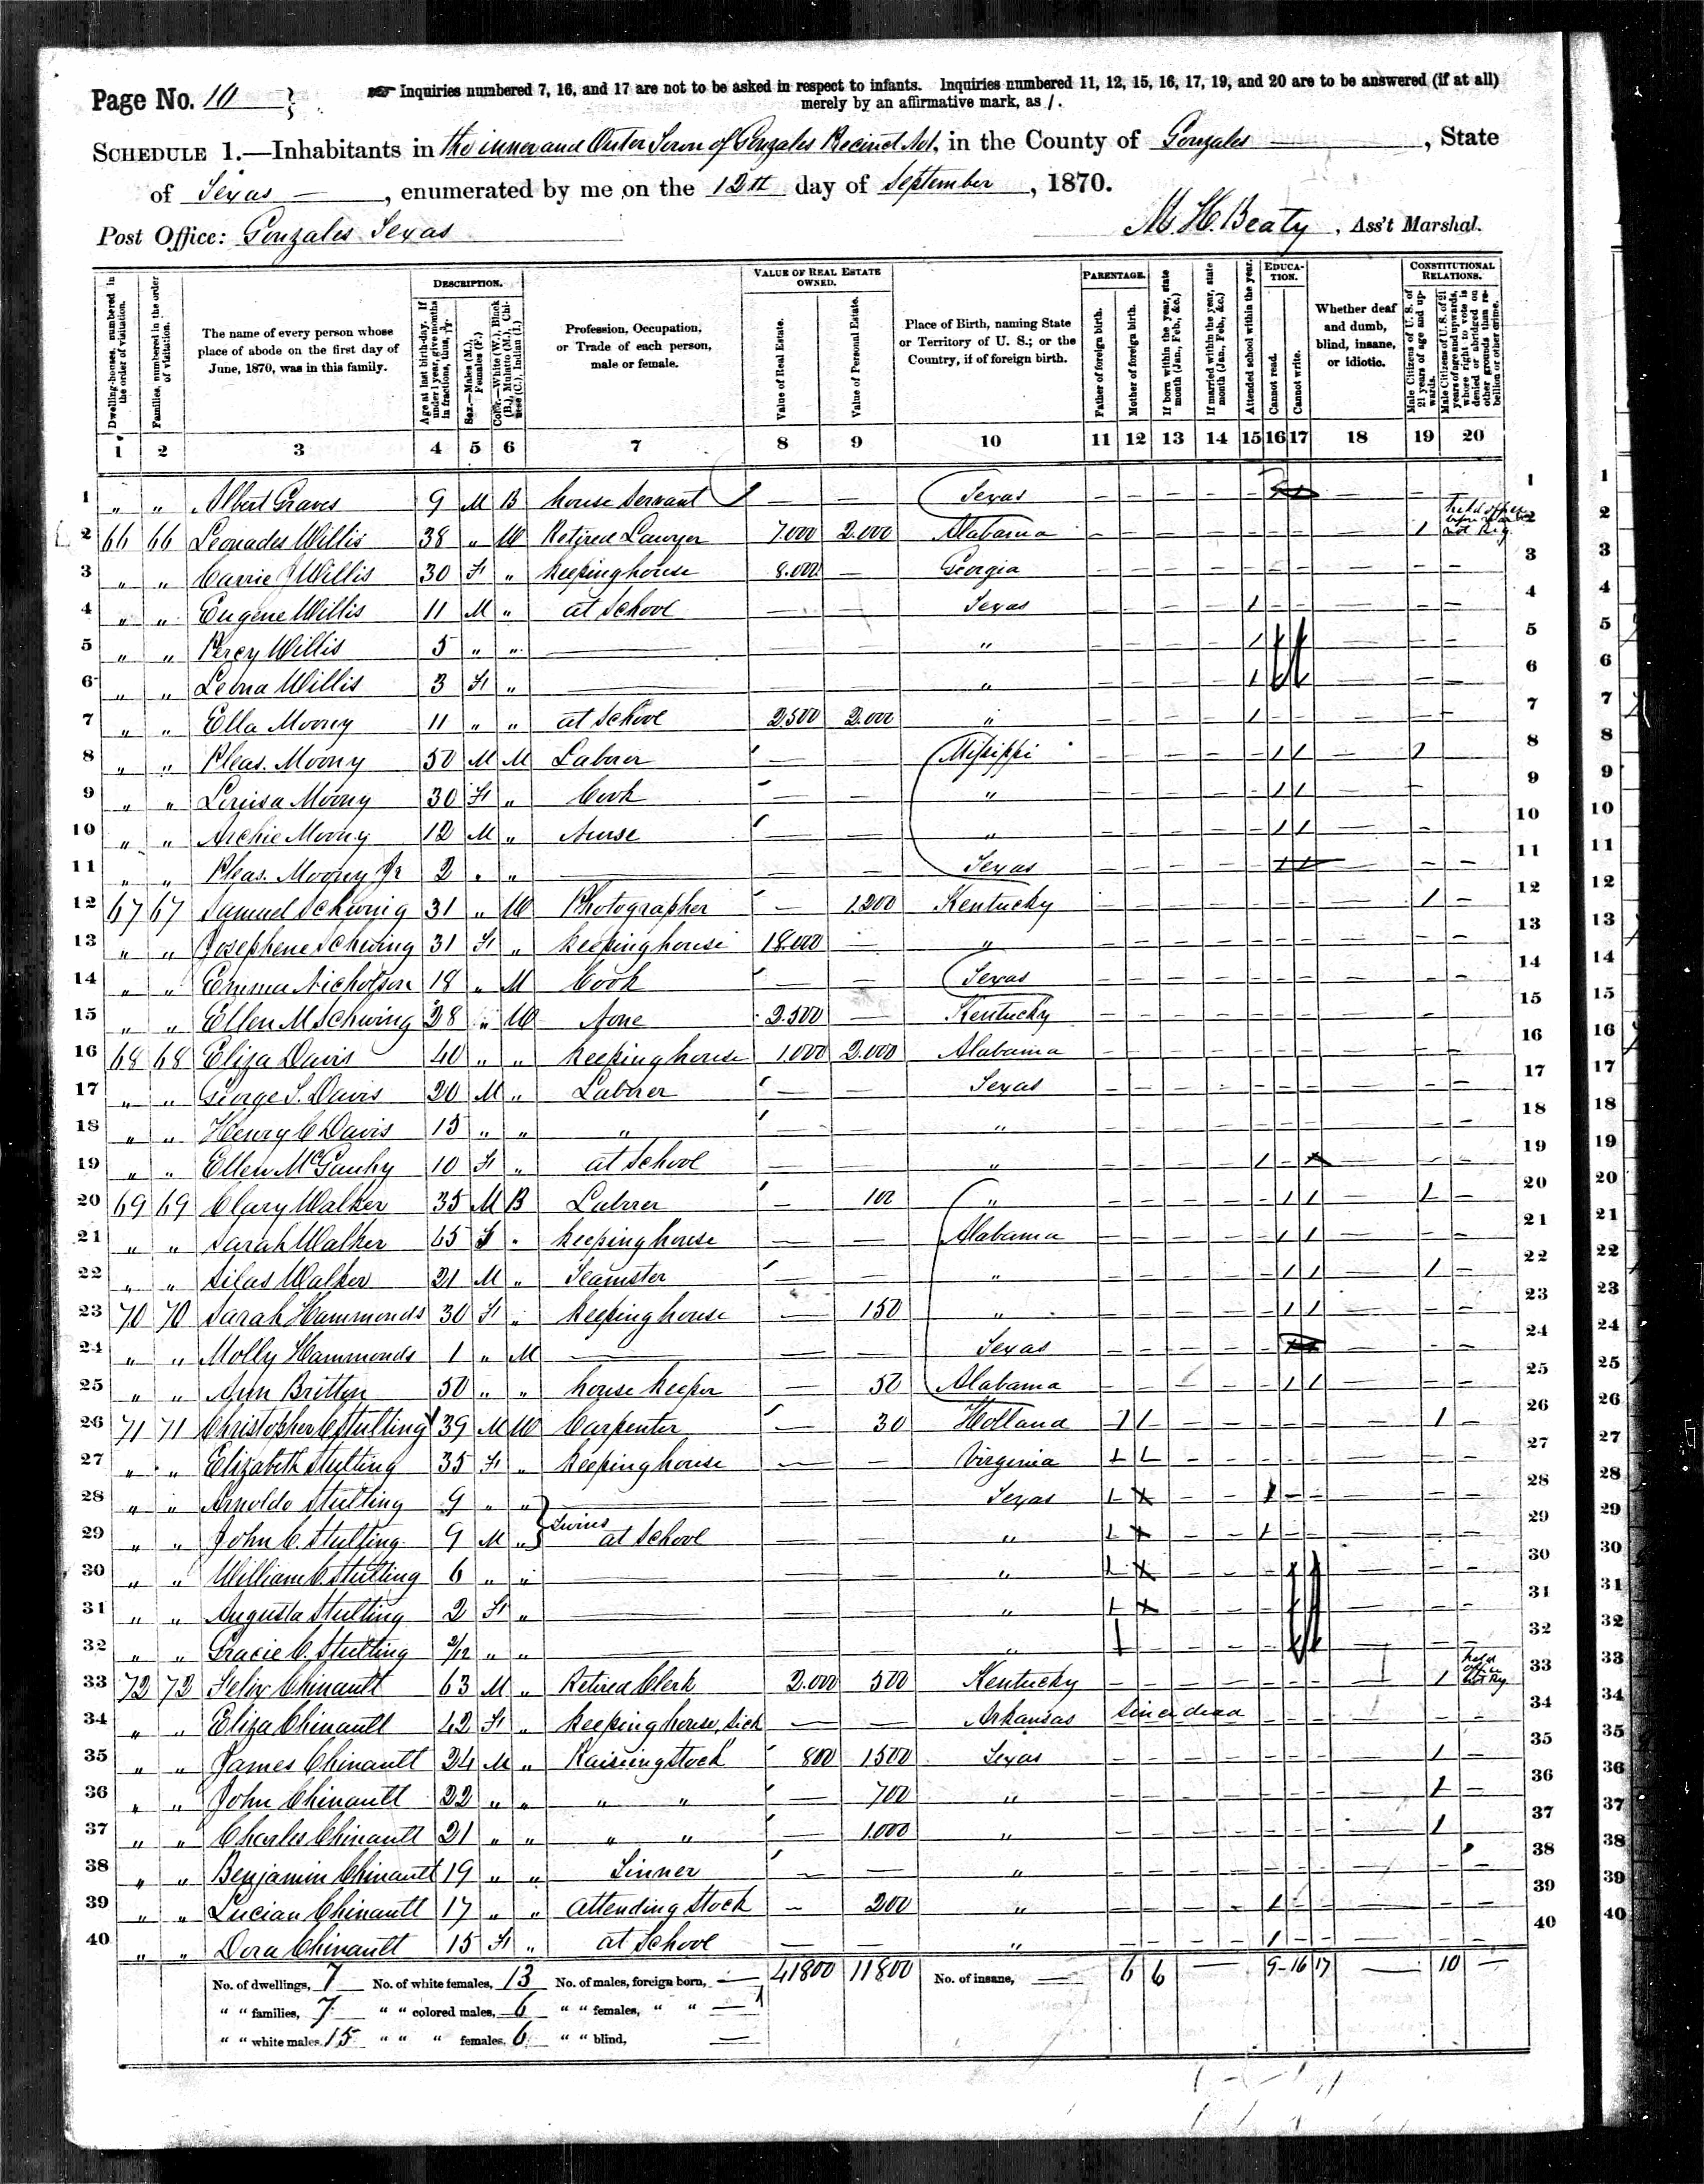 Page No. 10
Inquiries numbered 7, 16, and 17 are not to be asked in respect to infants. Inquiries numbered 11, 12, 15, 16, 17, 19, and 20 are to be answered (if at all)
merely by an affirmative mark, as /.
SCHEDULE 1.—Inhabitants in the inner and Outer Town of Gonzales, in the County of Gonzales, State
of Texas, enumerated by me on the 12th day of September, 1870.
Post Office: Gonzales Texas
M. H. Beaty, Ass't Marshal.
Dwelling-houses, numbered in the order of visitation.
Families, numbered in the order of visitation.
The name of every person whose place of abode on the first day of June, 1870, was in this family.
DESCRIPTION.
Age at last birth-day. If under 1 year, give months in fractions, thus,
Sex.—Males (M.), Females (F.)
Color.—White (W.), Black (B.), Mulatto (M.), Chinese (C.), Indian (I.)
Profession, Occupation, or Trade of each person, male or female.
VALUE OF REAL ESTATE OWNED.
Value of Real Estate.
Value of Personal Estate.
Place of Birth, naming State or Territory of U. S.; or the Country, if of foreign birth.
PARENTAGE.
Father of foreign birth.
Mother of foreign birth.
If born within the year, state month (Jan., Feb., &c.)
If married within the year, state month (Jan., Feb., &c.)
EDUCATION.
Attended school within the year.
Cannot read.
Cannot write.
Whether deaf and dumb, blind, insane, or idiotic.
CONSTITUTIONAL RELATIONS.
Male Citizens of U. S. of 21 years of age and upwards.
Male Citizens of U. S. of 21 years of age and upwards, whose right to vote is denied or abridged on other grounds than rebellion or other crime.
1 2 3 4 5 6 7 8 9 10 11 12 13 14 15 16 17 18 19 20
1 " " Albert Graves 9 M B house Servant — — Texas 1
2 66 66 Leonades Willis 38 " W Retired Lawyer 7.000 2.000 Alabama 1 2
3 " " Carrie J Willis 30 F " keeping house 8.000 — Georgia 3
4 " " Eugene Willis 11 M " at School — — Texas 1 4
5 " " Percy Willis 5 " " — — — " 1 5
6 " " Leona Willis 3 F " — — — " 1 6
7 " " Ella Moony 11 " " at School 2500 2.000 " 1 7
8 " " Pleas. Moony 50 M M Laborer — — Misippi 1 1 1 8
9 " " Louisa Moony 30 F " Cook — — " 1 1 9
10 " " Archie Moony 12 M " Nurse — — " 1 1 10
11 " " Pleas. Moony Jr 2 " " — — — Texas 11
12 67 67 Samuel Schwing 31 " W Photographer — 1.200 Kentucky 1 12
13 " " Josephene Schwing 31 F " keeping house 18.000 — " 13
14 " " Emma Nicholson 18 " M Cook — — Texas 14
15 " " Ellen M Schwing 28 " W None 2.500 — Kentucky 15
16 68 68 Eliza Davis 40 " " keeping house 1.000 2.000 Alabama 16
17 " " George S. Davis 20 M " Laborer — — Texas 17
18 " " Henry C Davis 15 " " " — — " 18
19 " " Ellen McGauhy 10 F " at School — — " 1 19
20 69 69 Clary Walker 35 M B Laborer — 100 " 1 1 1 20
21 " " Sarah Walker 45 F " keeping house — — Alabama 1 1 21
22 " " Silas Walker 21 M " Teamster — — " 1 1 1 22
23 70 70 Sarah Hammonds 30 F " keeping house — 150 " 1 1 23
24 " " Molly Hammonds 1 " M — — — Texas 24
25 " " Ann Britton 50 " " house keeper — 50 Alabama 1 1 25
26 71 71 Christopher C Stulting 39 M W Carpenter — 30 Holland 1 1 1 26
27 " " Elizabeth Stulting 35 F " keeping house — — Virginia 1 1 27
28 " " Arnoldo Stulting 9 " " — — — Texas 1 1 28
twins
29 " " John C. Stulting 9 M " at School — — " 1 1 29
30 " " William C Stulting 6 " " — — — " 1 30
31 " " Augusta Stulting 2 F " — — — " 1 31
32 " " Gracie C. Stulting 2/12 " " — — — " 1 32
33 72 72 Felix Chinault 63 M " Retired Clerk 2.000 500 Kentucky 1 33
34 " " Eliza Chinault 42 F " keeping house, sick — — Arkansas Since dead 34
35 " " James Chinault 24 M " Raising Stock 800 1500 Texas 1 35
36 " " John Chinault 22 " " " " — 700 " 1 36
37 " " Charles Chinault 21 " " " " — 1.000 " 1 37
38 " " Benjamin Chinault 19 " " Tinner — — " 38
39 " " Lucian Chinault 17 " " attending Stock — 200 " 1 39
40 " " Dora Chinault 15 F " at School — — " 1 40
No. of dwellings, 7 No. of white females, 13 No. of males, foreign born, — 41800 11800 No. of insane, — 6 6 — 9 - 16 17 — 10 —
" " families, 7 " " colored males, 6 " " females, " " — 1
" " white males, 15 " " " females, 6 " " blind, —